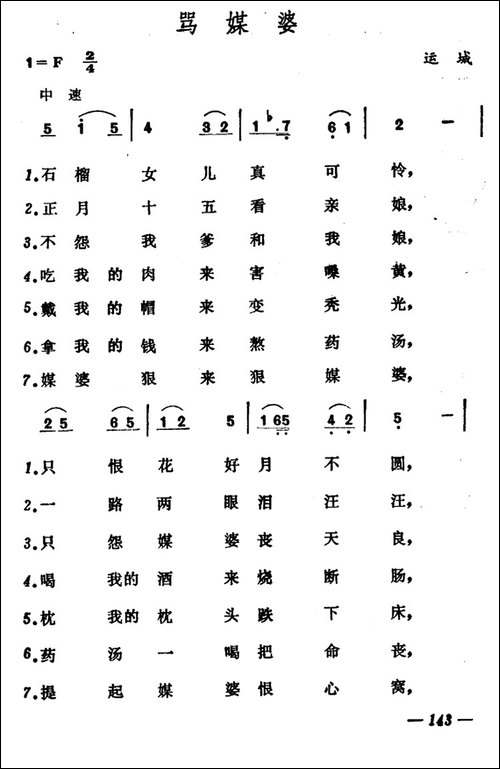 骂媒婆
1=F 2/4 运城
中速
5 i 5 | 4 3 2 | 1 ♭7 6 1 | 2 — |
1.石榴女儿真可怜,
2.正月十五看亲娘,
3.不怨我爹和我娘,
4.吃我的肉来害嗓黄,
5.戴我的帽来变秃光,
6.拿我的钱来熬药汤,
7.媒婆狠来狠媒婆,
2 5 6 5 | 1 2 5 | 1 6 5 4 2 | 5 — |
1.只恨花好月不圆,
2.一路两眼泪汪汪,
3.只怨媒婆丧天良,
4.喝我的酒来烧断肠,
5.枕我的枕头跌下床,
6.药汤一喝把命丧,
7.提起媒婆恨心窝,
— 143 —